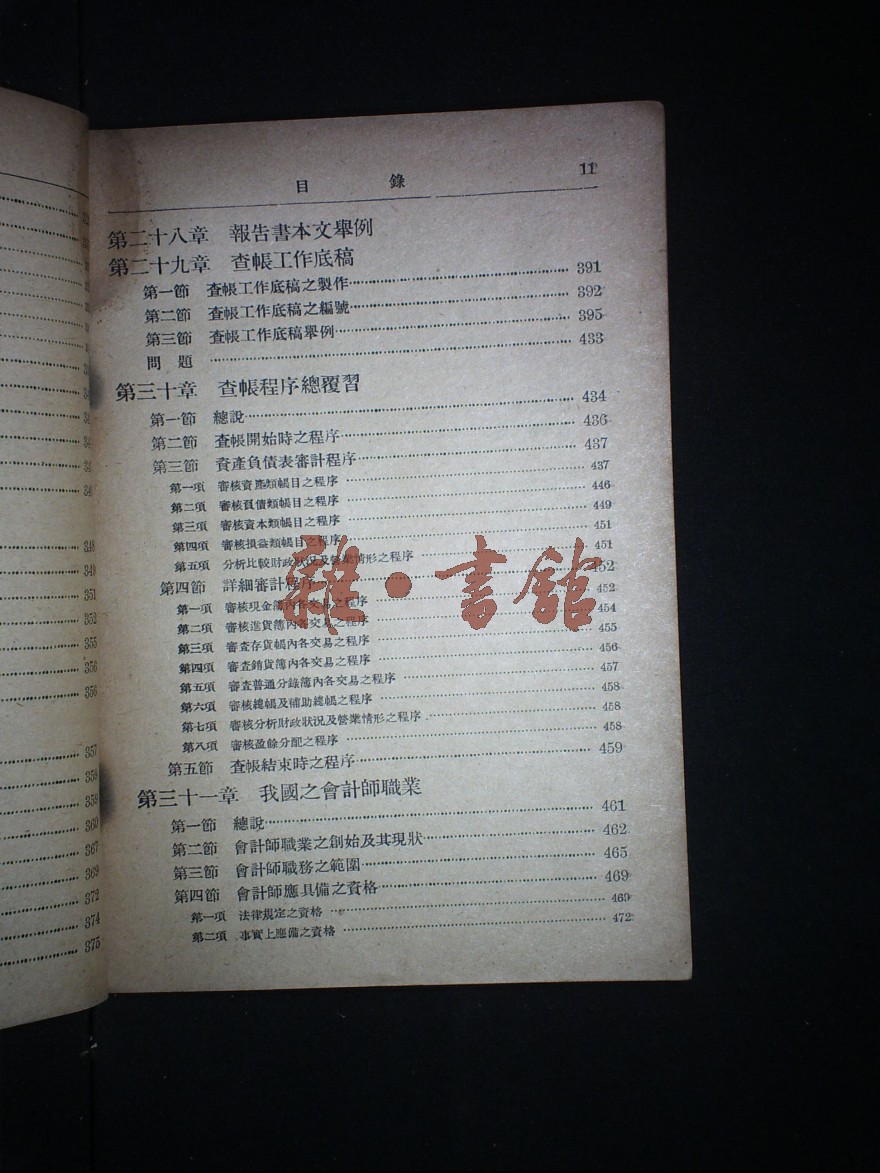 目　錄　11
第二十八章　報告書本文舉例
第二十九章　查帳工作底稿
第一節　查帳工作底稿之製作……391
第二節　查帳工作底稿之編號……392
第三節　查帳工作底稿舉例……395
問　題……433
第三十章　查帳程序總覆習
第一節　總說……434
第二節　查帳開始時之程序……436
第三節　資產負債表審計程序……437
第一項　審核資產類帳目之程序……437
第二項　審核負債類帳目之程序……446
第三項　審核資本類帳目之程序……449
第四項　審核損益類帳目之程序……451
第五項　分析比較財政狀況及營業情形之程序……451
第四節　詳細審計程序……452
第一項　審核現金簿內各交易之程序……452
第二項　審核進貨簿內各交易之程序……454
第三項　審查存貨帳內各交易之程序……455
第四項　審查銷貨簿內各交易之程序……456
第五項　審查普通分錄簿內各交易之程序……457
第六項　審核總帳及補助總帳之程序……458
第七項　審核分析財政狀況及營業情形之程序……458
第八項　審核盈餘分配之程序……458
第五節　查帳結束時之程序……459
第三十一章　我國之會計師職業
第一節　總說……461
第二節　會計師職業之創始及其現狀……462
第三節　會計師職務之範圍……465
第四節　會計師應具備之資格……469
第一項　法律規定之資格……469
第二項　事實上應備之資格……472
雜·書館
348
349
351
352
353
355
356
356
357
358
359
360
367
369
372
374
375